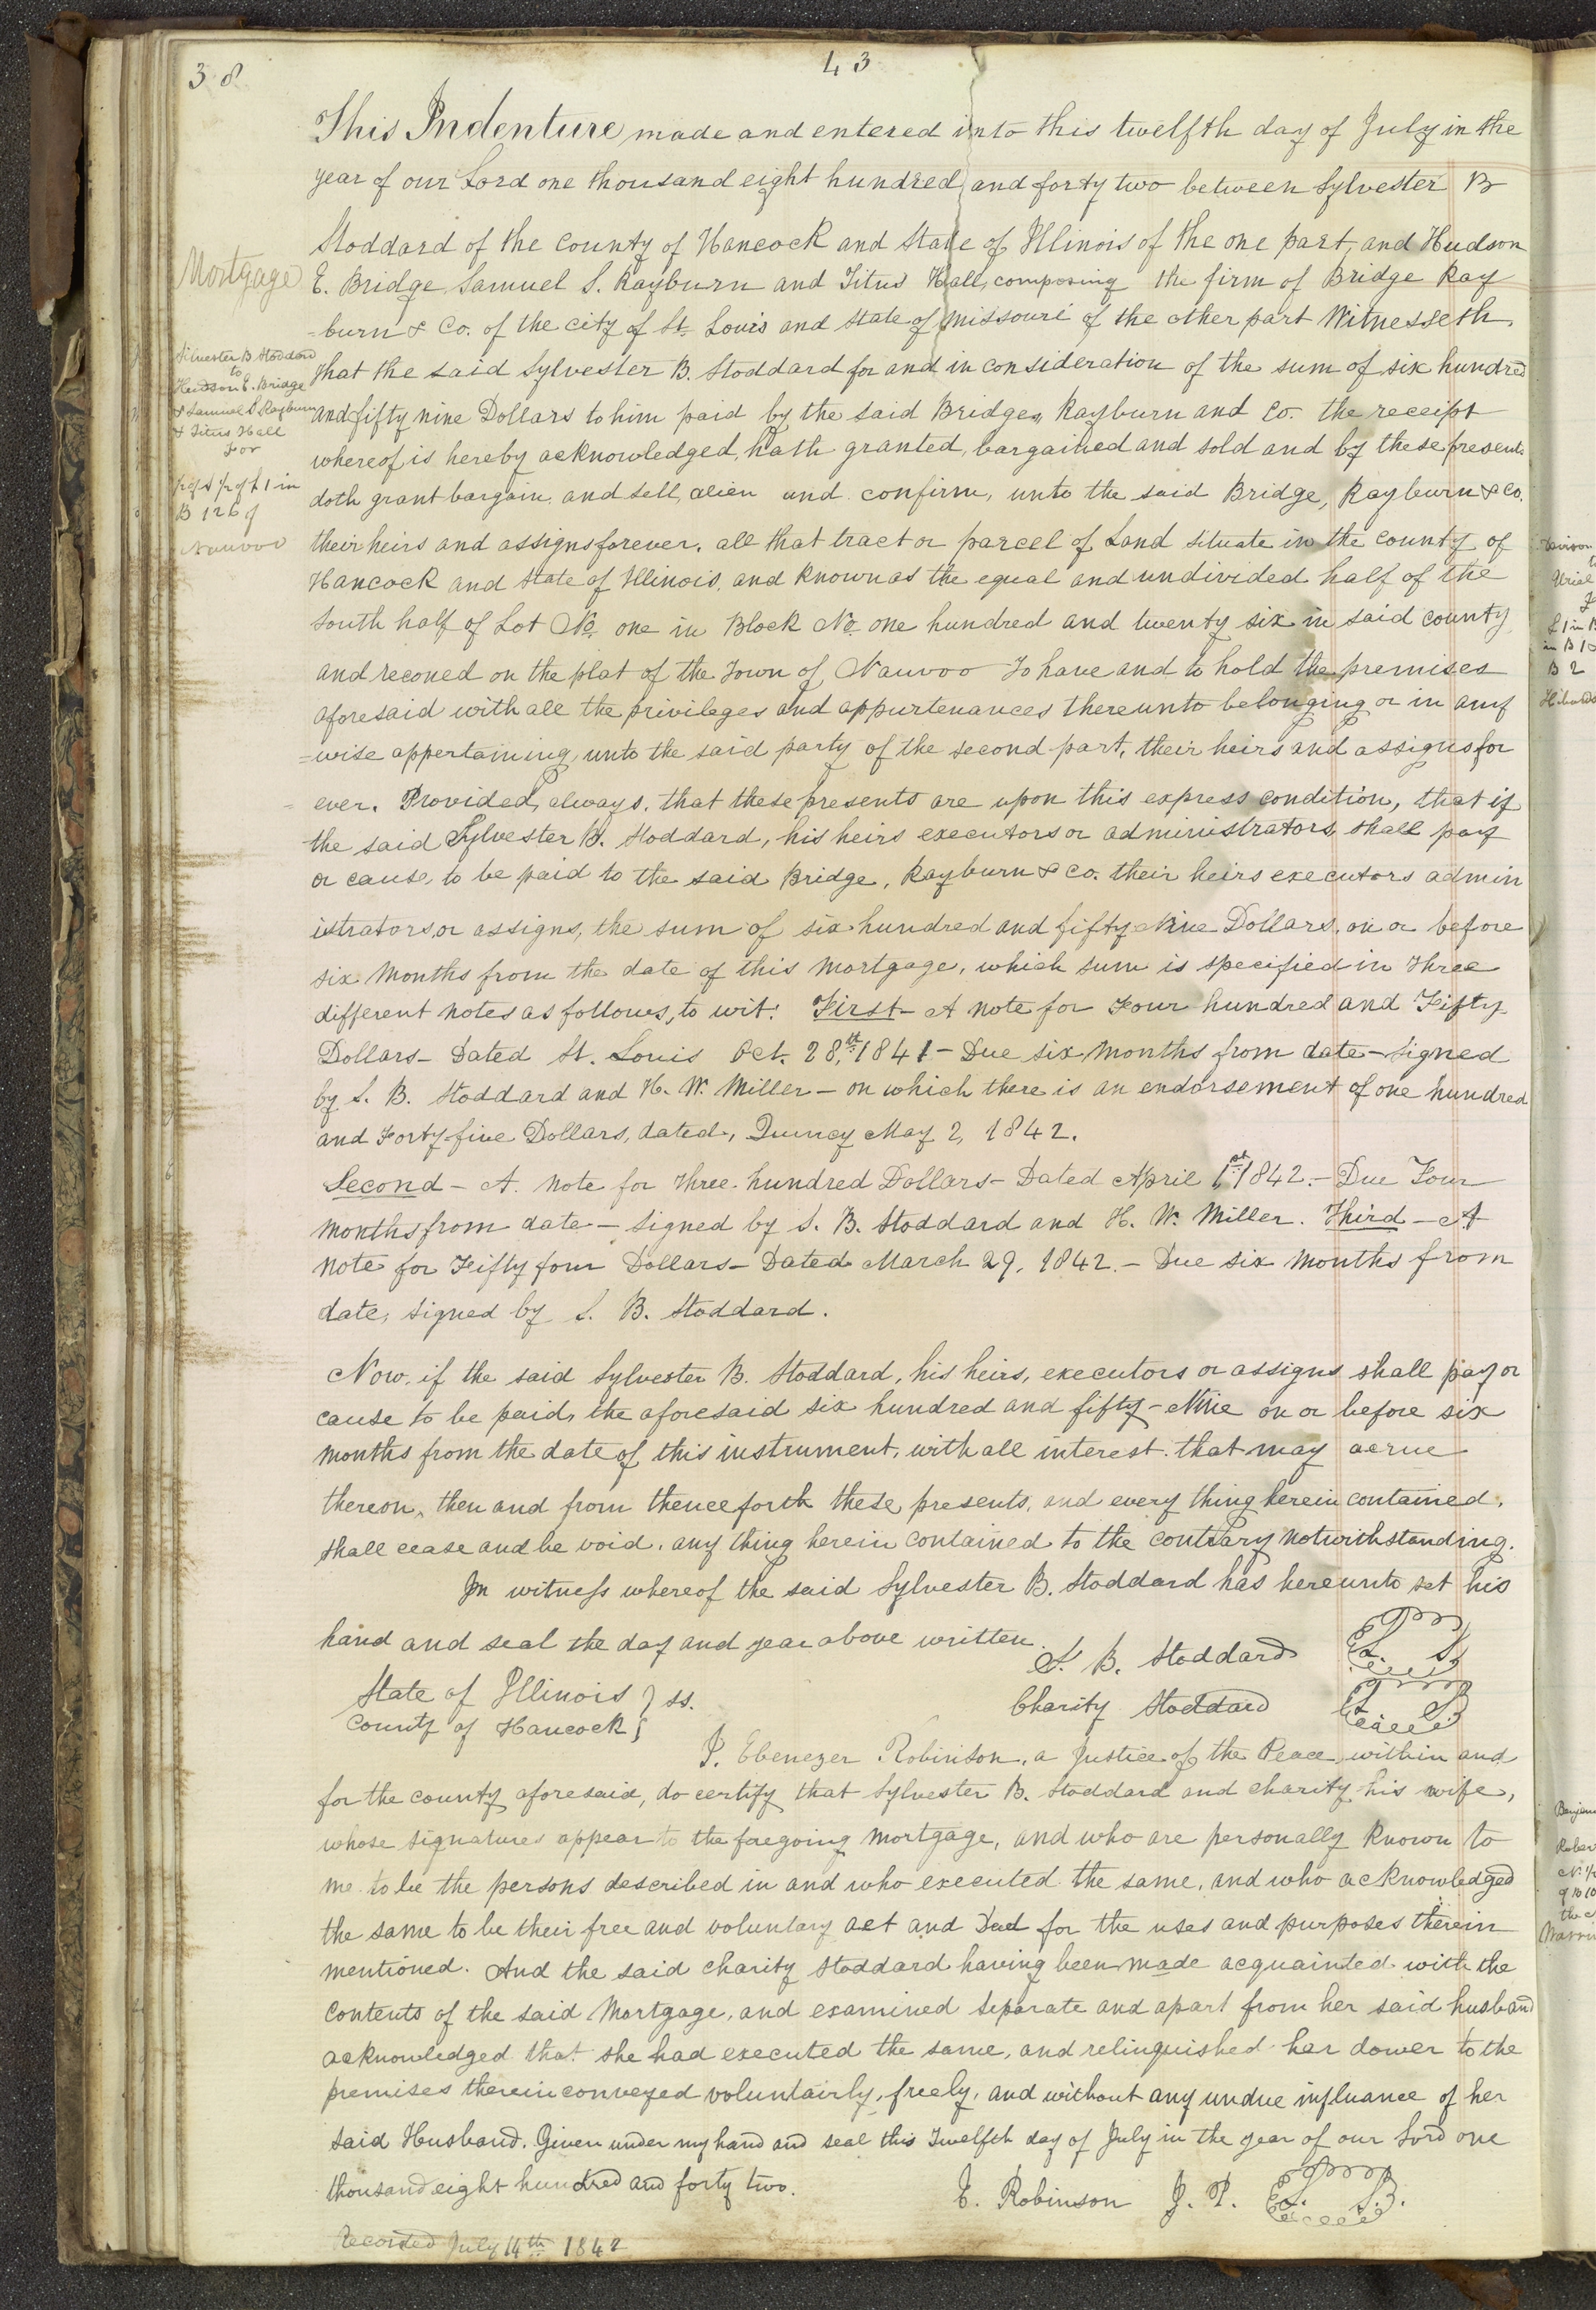 38
43
This Indenture made and entered into this twelfth day of July in the
year of our Lord one thousand eight hundred and forty two between Sylvester B
Stoddard of the County of Hancock and State of Illinois of the one part, and Hudson
Mortgage
E. Bridge Samuel S. Rayburn and Titus Hall, composing the firm of Bridge Ray
-burn & Co. of the city of St. Louis and State of Missouri of the other part Witnesseth,
Silvester B Stoddard
to
Hudson E. Bridge
& Samuel S Rayburn
& Titus Hall
For
in
B 126
Nauvoo
That the said Sylvester B. Stoddard for and in consideration of the sum of six hundred
and fifty nine Dollars to him paid by the said Bridge, Rayburn and Co. the receipt
whereof is hereby acknowledged, hath granted, bargained and sold and by these presents
doth grant bargain, and sell, alien and confirm, unto the said Bridge, Rayburn & Co.
their heirs and assigns forever, all that tract or parcel of Land situate in the County of
Hancock and State of Illinois, and known as the equal and undivided half of the
South half of Lot No. one in Block No. one hundred and twenty six in said county
and reconed on the plat of the Town of Nauvoo To have and to hold the premises
aforesaid with all the privileges and appurtenances thereunto belonging or in any
=wise appertaining, unto the said party of the second part, their heirs and assigns for
= ever. Provided, always, that these presents are upon this express condition, that if
the said Sylvester B. Stoddard, his heirs executors or administrators, shall pay
or cause, to be paid to the said Bridge, Rayburn & Co. their heirs executors admin
istrators or assigns, the sum of six hundred and fifty Nine Dollars, on or before
six Months from the date of this Mortgage, which sum is specified in Three
different notes as follows, to wit: First- A note for Four hundred and Fifty
Dollars- Dated St. Louis Oct. 28,th 1841- Due six Months from date- Signed
by S. B. Stoddard and H. W. Miller- on which there is an endorsement of one hundred
and Forty-five Dollars, dated, Quincy May 2, 1842.
Second - A. Note for Three hundred Dollars- Dated April 1,st 1842.- Due Four
Months from date- Signed by S. B. Stoddard and H. W. Miller. Third- A
Note for Fifty four Dollars- Dated March 29, 1842.- Due six Months from
date, signed by S. B. Stoddard.
Now, if the said Sylvester B. Stoddard, his heirs, executors or assigns shall pay or
cause to be paid, the aforesaid six hundred and fifty-Nine on or before six
Months from the date of this instrument, with all interest that may acrue
thereon, then and from thenceforth these presents, and every thing herein contained,
shall cease and be void, any thing herein contained to the contrary notwithstanding.
In witness whereof the said Sylvester B. Stoddard has hereunto set his
hand and seal the day and year above written.
S. B. Stoddard L. S.
State of Illinois } ss.
County of Hancock }
Charity Stoddard L. S.
I, Ebenezer Robinson, a Justice of the Peace within and
for the county aforesaid, do certify that Sylvester B. Stoddard and Charity his wife,
whose signatures appear to the foregoing Mortgage, and who are personally known to
me to be the persons described in and who executed the same, and who acknowledged
the same to be their free and voluntary act and Deed for the uses and purposes therein
mentioned. And the said Charity Stoddard having been made acquainted with the
contents of the said Mortgage, and examined separate and apart from her said husband
acknowledged that she had executed the same, and relinquished her dower to the
premises therein conveyed voluntairly, freely, and without any undue influance of her
said Husband. Given under my hand and seal this Twelfth day of July in the year of our Lord one
thousand eight hundred and forty two.
E. Robinson J. P. L. S.
Recorded July 14th 1842